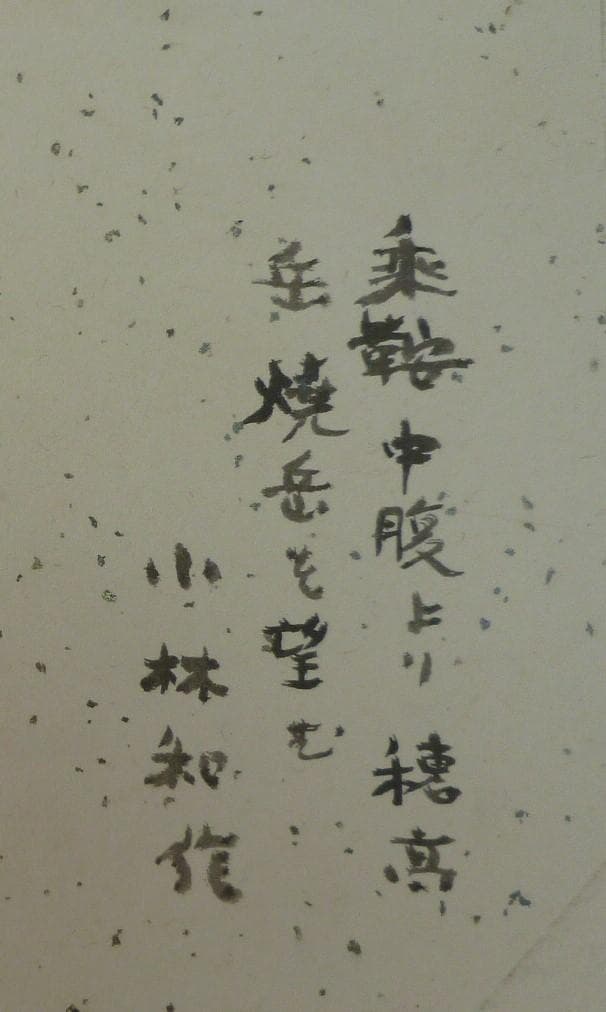 乗鞍中腹より 穂高
岳 焼岳を望む
小林和作